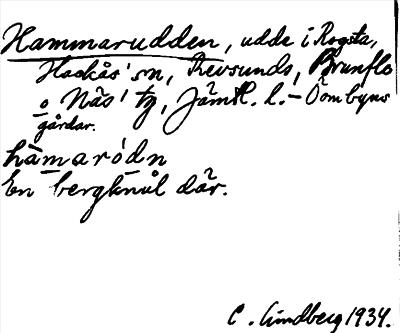 Hammarudden, udde i Rogsta,
Hackås' sn, Revsunds, Brunflo
o Näs' tg, Jämtl. l. – Öombyns
gårdar.
hàmaródn
En bergknul där.
C. Lindberg 1934.